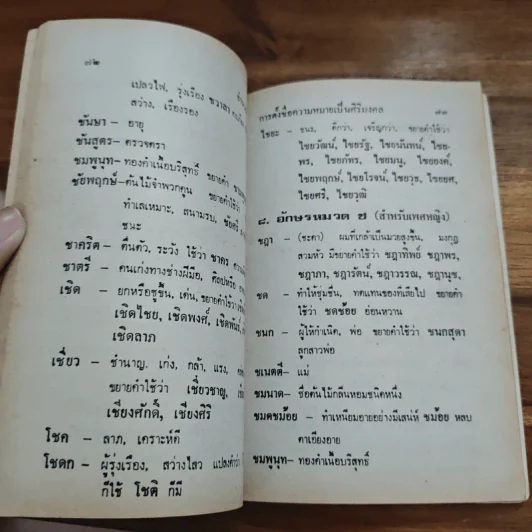 ๗๒
เปลวไฟ, รุ่งเรือง ชวาลา
สว่าง, เรืองรอง
ชันษา — อายุ
ชันสูตร — ตรวจตรา
ชมพูนุท — ทองคำเนื้อบริสุทธิ์ ขยายคำ
ชัยพฤกษ์ — ต้นไม้จำพวกคูน ขยายคำใช้ว่า
ทำเลเหมาะ, สนามรบ, ชัยศรี
ชนะ
ชาคริต — ตื่นตัว, ระวัง ใช้ว่า ชาคร
ชาตรี — คนเก่งทางช่างฝีมือ, ศิลปหรือ
เชิด — ยกหรือชูขึ้น, เด่น, ขยายคำใช้ว่า
เชิดไชย, เชิดพงศ์, เชิดพันธ์
เชิดลาภ
เชี่ยว — ชำนาญ, เก่ง, กล้า, แรง,
ขยายคำใช้ว่า เชี่ยวชาญ,
เชียงศักดิ์, เชียงศิริ
โชค — ลาภ, เคราะห์ดี
โชดก — ผู้รุ่งเรือง, สว่างไสว แปลงคำว่า
ก็ใช้ โชติ ก็มี
การตั้งชื่อความหมายเป็นศิริมงคล ๗๓
ไชยะ — ชนะ, ดีกว่า, เจริญกว่า, ขยายคำใช้ว่า
ไชยวัฒน์, ไชยรัฐ, ไชยนันทน์, ไชย-
พร, ไชยภัทร, ไชยมนู, ไชยองค์,
ไชยพฤกษ์, ไชยโรจน์, ไชยวุธ, ไชยยศ,
ไชยศรี, ไชยวุฒิ
๘. อักษรหมวด ช (สำหรับเพศหญิง)
ชฎา — (ชะดา) ผมที่เกล้าเป็นมวยสูงขึ้น, มงกุฎ
สวมหัว มีขยายคำใช้ว่า ชฎาทิพย์ ชฎาพร,
ชฎาภา, ชฎารัตน์, ชฎาวรรณ, ชฎานุช,
ชด — ทำให้ชุ่มชื่น, ทดแทนของที่เสียไป ขยายคำ
ใช้ว่า ชดช้อย อ่อนหวาน
ชนก — ผู้ให้กำเนิด, พ่อ ขยายคำใช้ว่า ชนกสุดา
ลูกสาวพ่อ
ชเนตตี — แม่
ชมนาด — ชื่อต้นไม้กลิ่นหอมชนิดหนึ่ง
ชมดชม้อย — ทำเหนียมอายอย่างมีเสน่ห์ ชม้อย หลบ
ตาเอียงอาย
ชมพูนุท — ทองคำเนื้อบริสุทธิ์